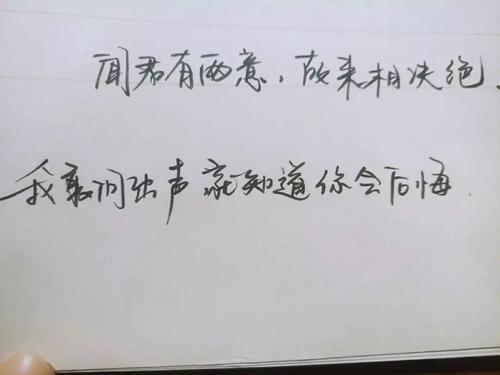 闻君有两意，故来相决绝。
我敢问出声就知道你会后悔.